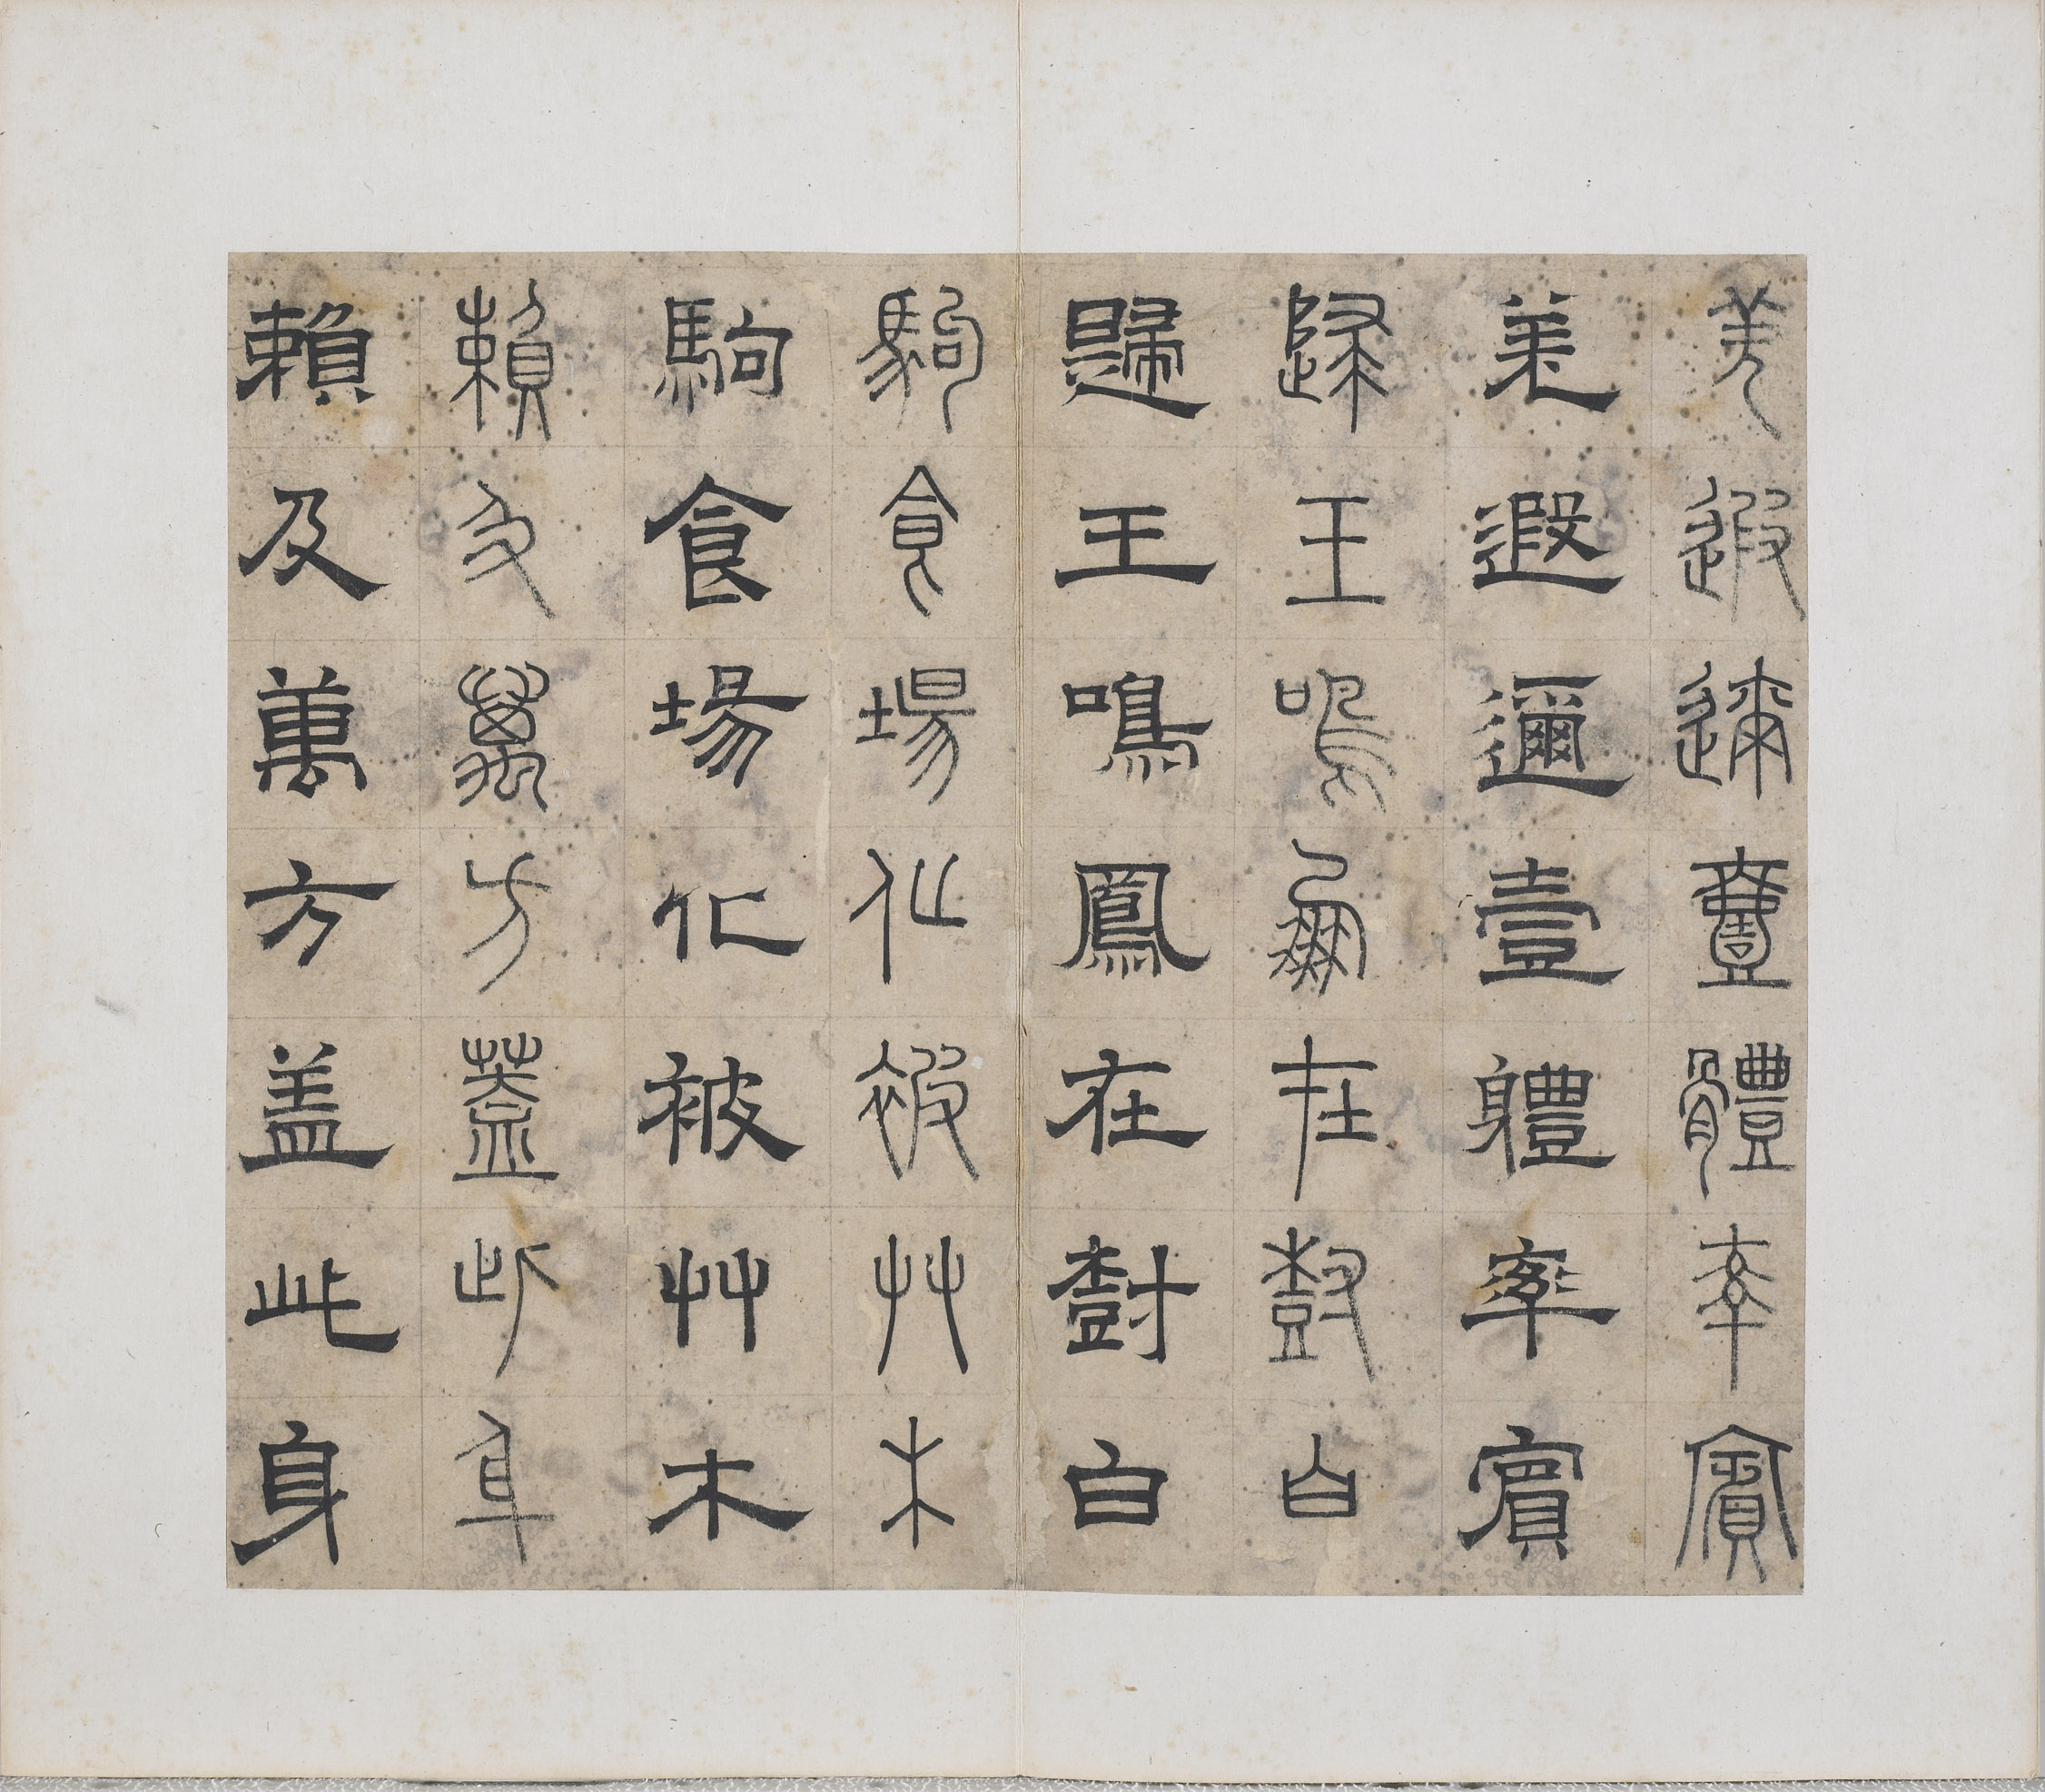 羌遐邇壹體率賓
羌遐邇壹軆率賔
歸王鳴鳳在樹白
歸王鳴鳳在樹白
駒食場化被艸木
駒食場化被艸木
賴及萬方蓋此身
賴及萬方盖此身